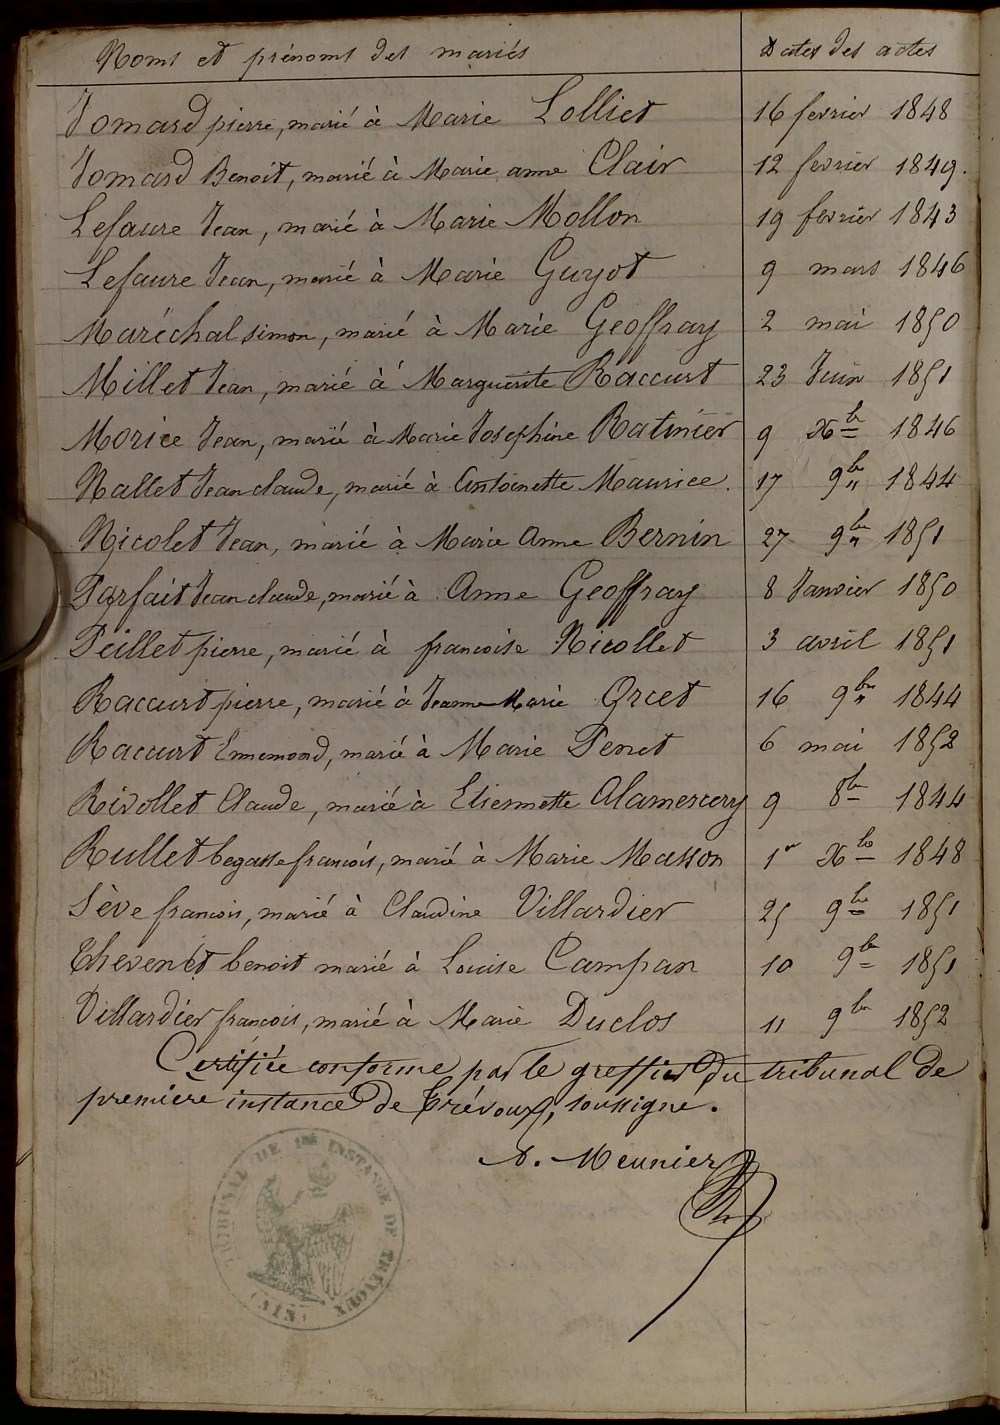 Noms et prénoms des mariés Dates des actes
Jomard pierre, marié à Marie Lolliet 16 fevrier 1848
Jomard Benoit, marié à Marie anne Clair 12 fevrier 1849.
Lefaure Jean, marié à Marie Mollon 19 fevrier 1843
Lefaure Jean, marié à Marie Guyot 9 mars 1846
Maréchal simon, marié à Marie Geoffray 2 mai 1850
Millet Jean, marié à Marguerite Raccurt 23 Juin 1851
Morice Jean, marié à Marie Josephine Ratinier 9 Xbre 1846
Nallet Jean claude, marié à Antoinette Maurice. 17 9bre 1844
Nicolet Jean, marié à Marie Anne Bernin 27 9bre 1851
Parfait Jean claude, marié à Anne Geoffray 8 Janvier 1850
Peillet pierre, marié à francoise Nicollet 3 avril 1851
Raccurt pierre, marié à Jeanne Marie Orcet 16 9bre 1844
Racurt Ennemond, marié à Marie Penet 6 mai 1852
Rivollet Claude, marié à Etiennette Alamercery 9 8bre 1844
Rullet begasse francois, marié à Marie Masson 1er Xbre 1848
Sève francois, marié à Claudine Villardier 25 9bre 1851
Thevenet benoit marié à Louise Campan 10 9bre 1851
Villardier francois, marié à Marie Duclos 11 9bre 1852
Certifiée conforme par le greffier du tribunal de
premiere instance de Trévoux, soussigné.
A. Meunier
TRIBUNAL DE 1RE INSTANCE DE TRÉVOUX
(AIN)